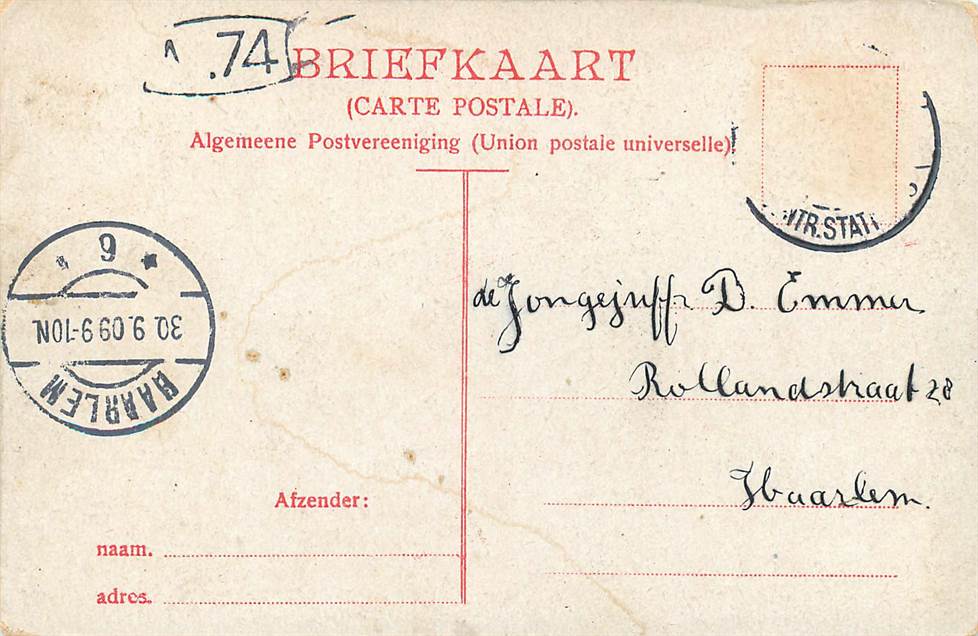 .74
BRIEFKAART
(CARTE POSTALE).
Algemeene Postvereeniging (Union postale universelle)
NTR.STAT
6
30.9.09 9-10N.
HAARLEM
de Jongejuffr D. Emmer
Rollandstraat 28
Haarlem.
Afzender:
naam.
adres.